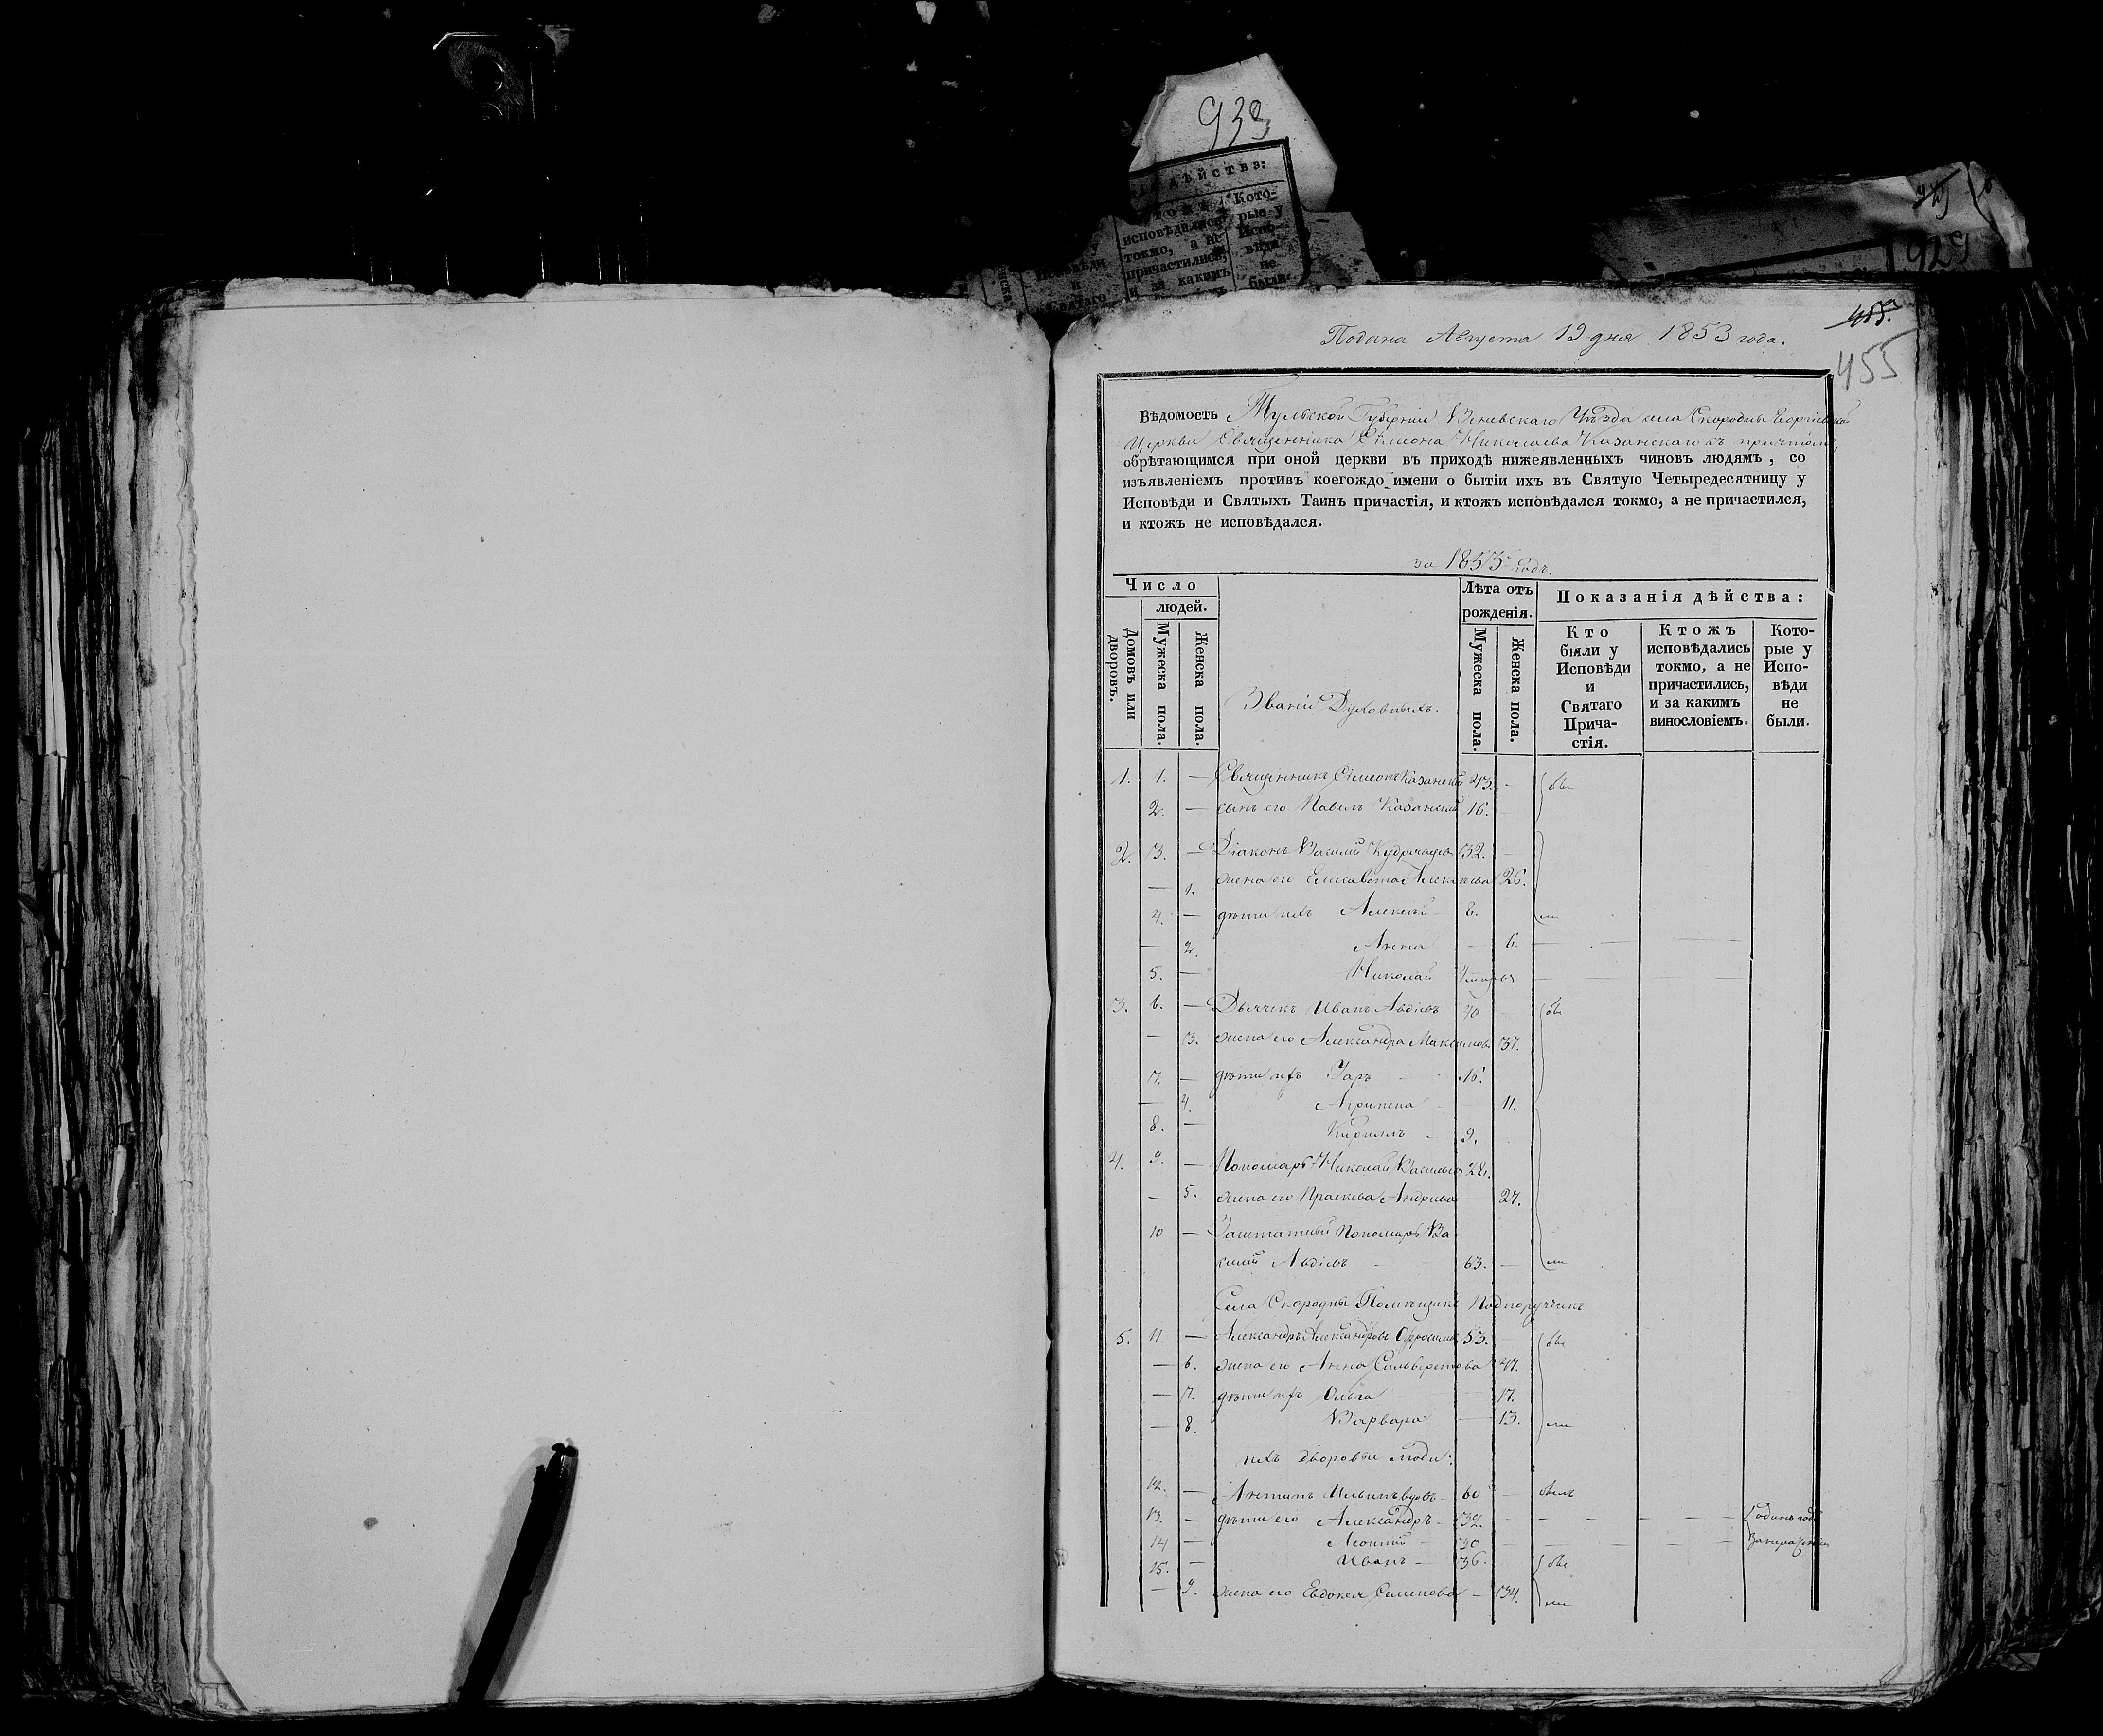 933
дѣйства:
Кото-
исповѣдались
рые у
токмо, а не
Испо-
причастились,
вѣди
и за какимъ
не
были.
Исповѣди
и
Святаго
929
455
Подана Августа 19 дня 1853 года.
455
Вѣдомость Тульской Губерніи Веневскаго Уѣзда села Скородны Георгіевской
Церкви Священника Сімеона Николаева Казанскаго съ причтомъ,
обрѣтающимся при оной церкви въ приходѣ нижеявленныхъ чиновъ людямъ, со
изъявленіемъ противъ коегождо имени о бытіи ихъ въ Святую Четыредесятницу у
Исповѣди и Святыхъ Таинъ причастія, и ктожъ исповѣдался токмо, а не причастился,
и ктожъ не исповѣдался.
за 1853 годъ.
Число
людей.
Домовъ или дворовъ.
Мужеска пола.
Женска пола.
Званій Духовныхъ.
Лѣта отъ
рожденія.
Мужеска пола.
Женска пола.
Показанія дѣйства:
Кто
были у
Исповѣди
и
Святаго
Прича-
стія.
Ктожъ
исповѣдались
токмо, а не
причастились,
и за какимъ
винословіемъ.
Кото-
рые у
Испо-
вѣди
не
были.
1. 1. — Священникъ Сімеонъ Казанскій 43. - бы
2. — сынъ его Павелъ Казанскій 16.
2. 3. — Діаконъ Василій 32. -
— 1. жена его Елисавета Алексѣева 26.
4. — дѣти ихъ Алексѣй - 8. ли
— 2. Анна - 6. — — —
5. — Николай — —
3. 6. — Дьячекъ Иванъ Авдіевъ 40 бы
— 3. жена его Александра Максимова 37.
7. — дѣти ихъ Уаръ -
— 4. Агрипена - 11.
8. — Кириллъ - 9.
4. 9. — Пономарь Николай Васильевъ 28.
— 5. жена его Праскева Андреева - 27.
10 — Заштатный Пономарь Ва-
силій Авдіевъ - 63. — ли
Села Скородны Помѣщикъ Подпоручикъ
5. 11. — Александръ Александровъ 53. бы
— 6. жена его Анна Сильверстова 47.
— 7. дѣти ихъ Ольга - 17.
— 8. Варвара — 13. ли
ихъ дворовые люди:
12. — Антипъ Ильинъ вдовъ - 60 — былъ
13. — дѣти его Александръ - 32. - - - - - - одинъ годъ
14 — Леонтій - 30 - - - - - -
15. — Иванъ - 36. бы
— 9. жена его Евдокея Семенова — 34. ли